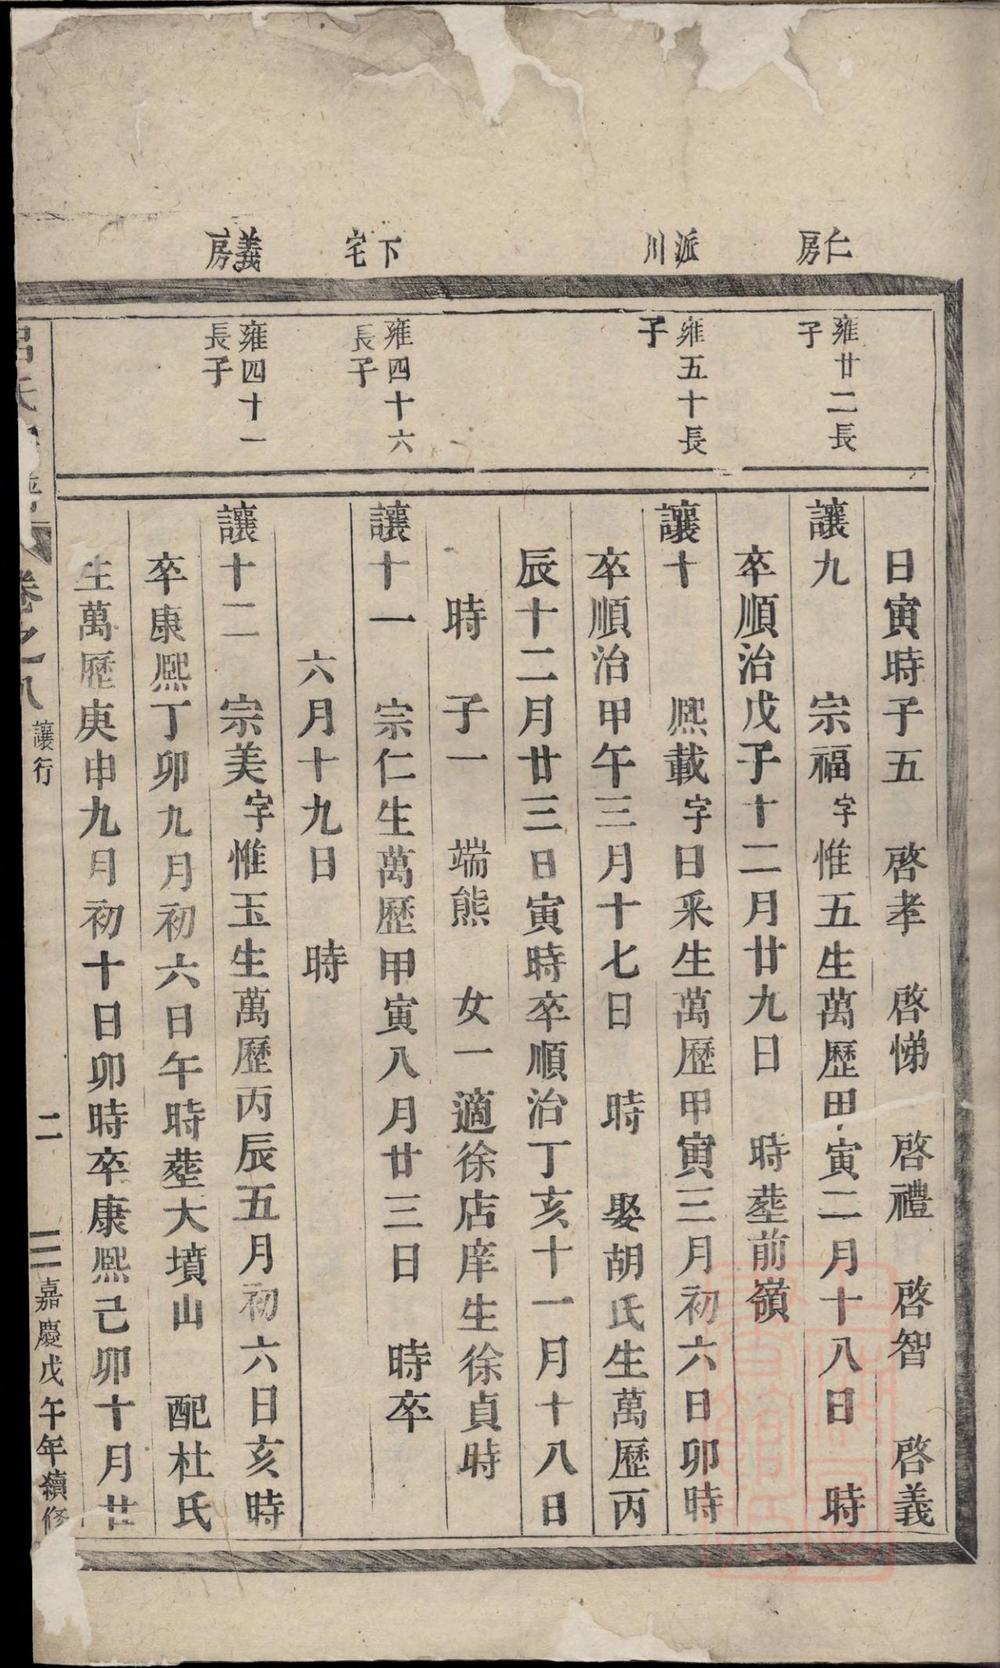 仁房
派川
下宅
義房
雍廿二長
子
雍五十長
子
雍四十六
長子
雍四十一
長子
日寅時子五 啓孝 啓悌 啓禮 啓智 啓義
讓九 宗福字惟五生萬歷甲寅二月十八日 時
卒順治戊子十二月廿九日 時塟前嶺
讓十 熈載字日采生萬歷甲寅三月初六日卯時
卒順治甲午三月十七日 時 娶胡氏生萬歷丙
辰十二月廿三日寅時卒順治丁亥十一月十八日
時 子一 端熊 女一適徐店庠生徐貞時
讓十一 宗仁生萬歷甲寅八月廿三日 時卒
六月十九日 時
讓十二 宗美字惟玉生萬歷丙辰五月初六日亥時
卒康熈丁卯九月初六日午時塟大墳山 配杜氏
生萬歷庚申九月初十日卯時卒康熈己卯十月廿
呂氏 卷之八 讓行 二 嘉慶戊午年續修